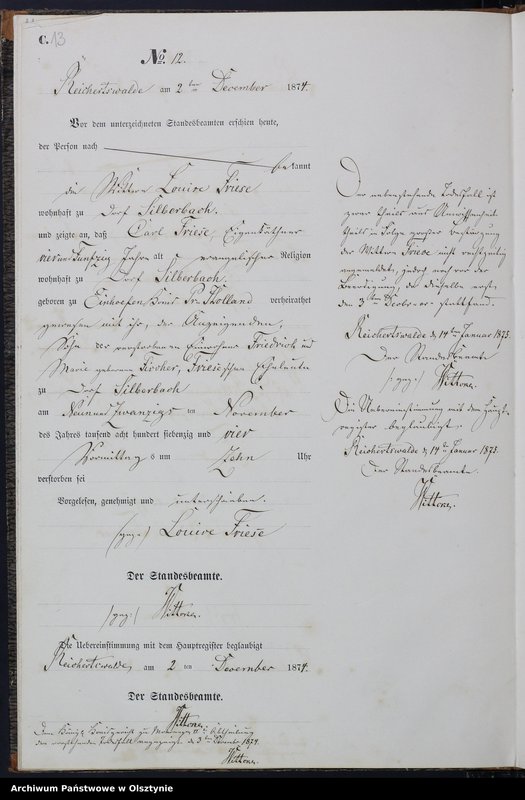 C. 13
No. 12.
Reichertswalde am 2 ten December 1874.
Vor dem unterzeichneten Standesbeamten erschien heute,
der Person nach
bekannt
die Wittwe Louise Friese
wohnhaft zu Dorf Silberbach.
und zeigte an, daß Carl Friese, Eigenthümer
vier und fünfzig Jahre alt evangelischer Religion
wohnhaft zu Dorf Silberbach
geboren zu Kreis Pr. Holland verheirathet
gewesen mit ihr, der Anzeigenden,
Sohn der verstorbenen Einwohner Friedrich und
Marie geborene Fischer, Friese'schen Eheleute
zu Dorf Silberbach
am Neun und zwanzigsten November
des Jahres tausend acht hundert siebenzig und vier
Vormittags um Zehn Uhr
verstorben sei
Vorgelesen, genehmigt und unterschrieben.
(gez.) Louise Friese
Der Standesbeamte.
(gez.) Wittone.
Die Uebereinstimmung mit dem Hauptregister beglaubigt
Reichertswalde, am 2 ten December 1874.
Der Standesbeamte.
Wittone.
den 3 ten December 1874.
Wittone.
Der nebenstehende Todesfall ist
zwar theils aus Unwissenheit
theils in Folge großer
der Wittwe Friese nicht rechtzeitig
angemeldet, jedoch erst vor der
Beerdigung, da dieselbe erst
den 3 ten December stattfand.
Reichertswalde d. 14 ten Januar 1875.
Der Standesbeamte
(gez.) Wittone.
Die Uebereinstimmung mit dem Haupt-
register beglaubigt.
Reichertswalde d. 14 ten Januar 1875.
Der Standesbeamte.
Wittone.
Archiwum Państwowe w Olsztynie